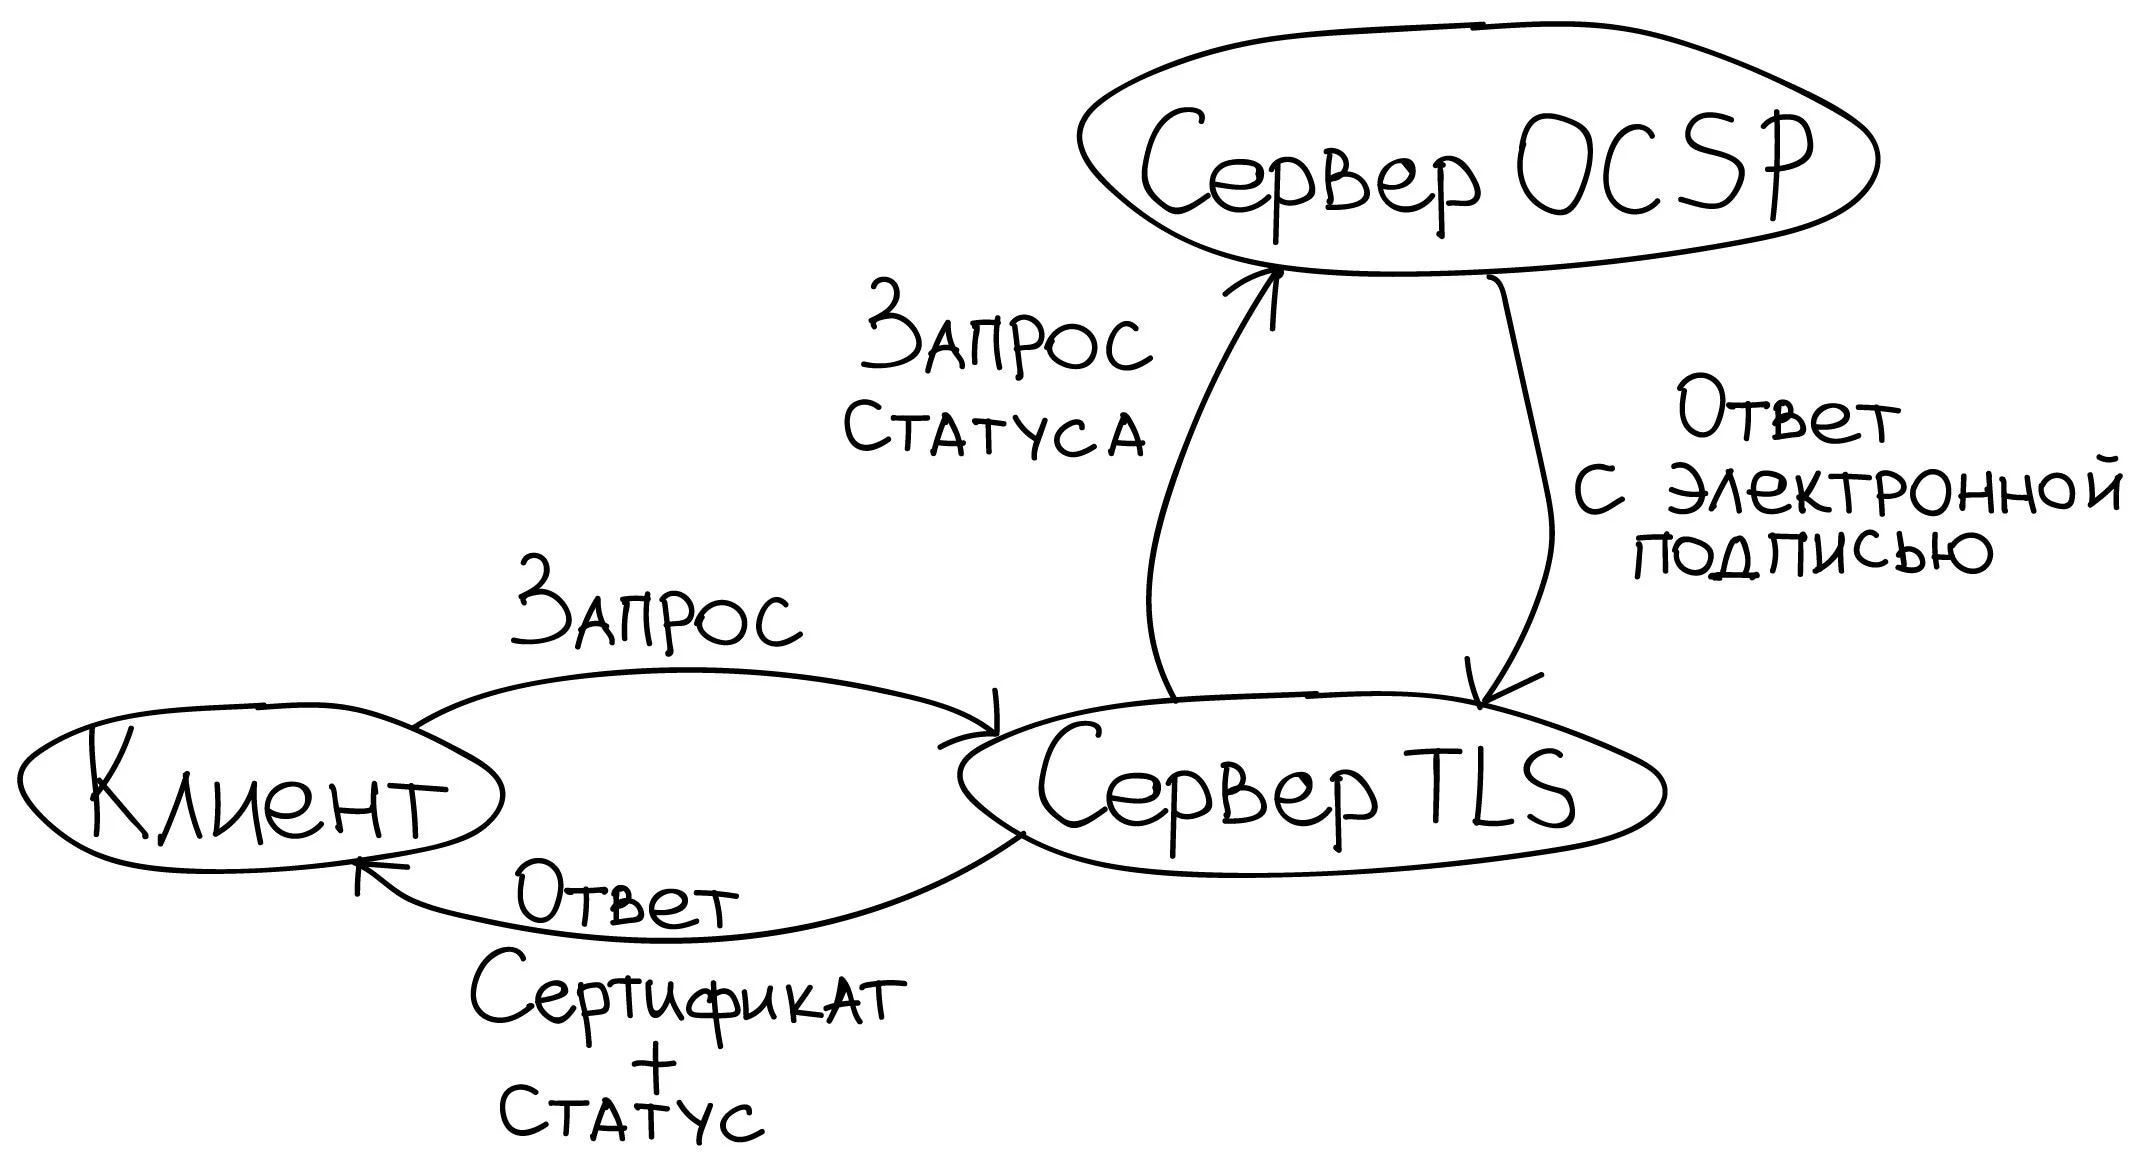 Сервер OCSP
Запрос
статуса
Ответ
с электронной
подписью
Запрос
Клиент
Сервер TLS
Ответ
Сертификат
+
статус